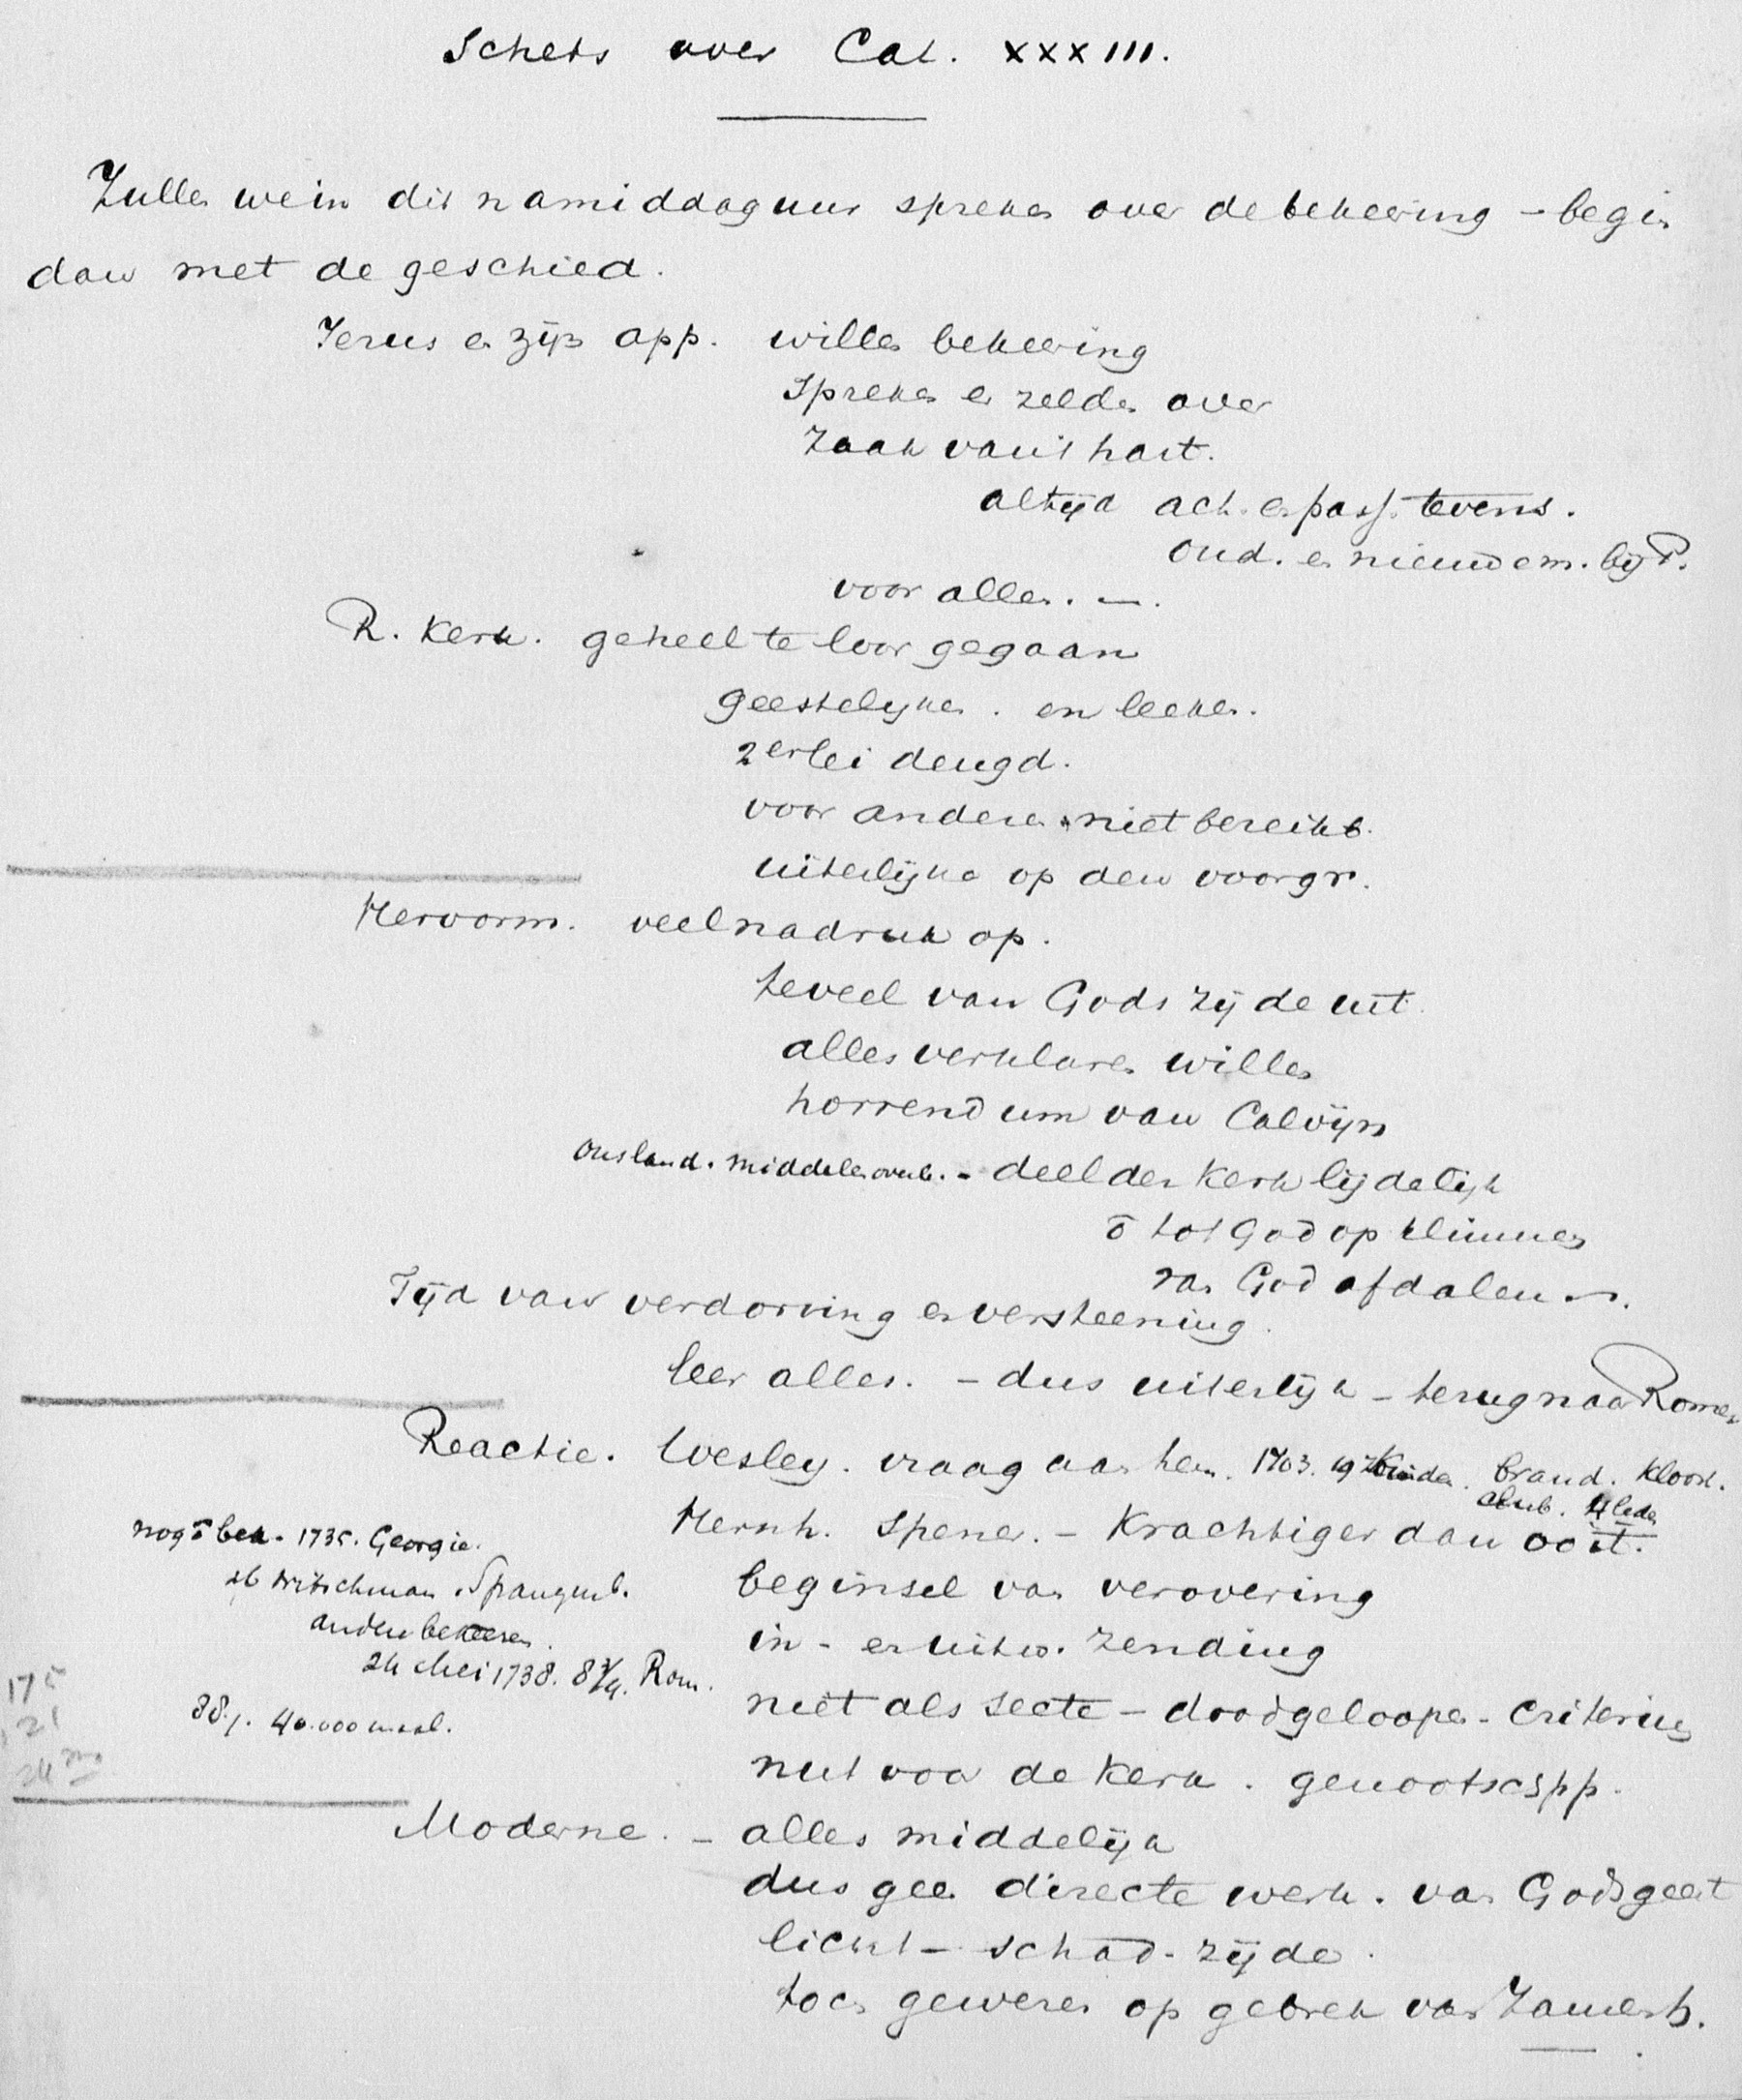 Schets over Cat. XXXIII.
Zullen we in dit namiddaguur spreken over de bekeering – begin
dan met de geschied.
Jezus en zijn app. willen bekeering
spreken er zelden over
zaak van 't hart.
altijd act. en pass. tevens.
oud. en nieuwe m. bij P.
voor allen. –.
R. Kerk. geheel te loor gegaan
geestelijken. en leeken.
2erlei deugd.
voor anderen niet bereikb.
uiterlijke op den voorgr.
Hervorm. veel nadruk op.
teveel van Gods zijde uit.
alles verklaren willen
horrendum van Calvijn
ons land. middelen overb. – deel der Kerk lijdelijk
õ tot God opklimmen
van God afdalen
Tijd van verdorring en versteening.
leer alles. – dus uiterlijk – terug naar Rome
Reactie. Wesley. vraag aan hen. 1703. 19 Kinder. brand. Kloost.
club. 4 leden
Hernh. Spener. – Krachtiger dan ooit.
nog õ bek. 1735. Georgie.
beginsel van verovering
Nitschman. Spangenb.
anderen bekeeren.
in- en uitw. zending
24 Mei 1738. 8¾. Rom.
niet als secte – doodgeloopen – Criterium
88 j. 40.000 maal.
175
21
24
nut voor de Kerk. genootscspp.
Moderne. – alles middelijk
dus geen directe werk. van Gods geest
licht – schad-zijde.
toch gewezen op gebrek van